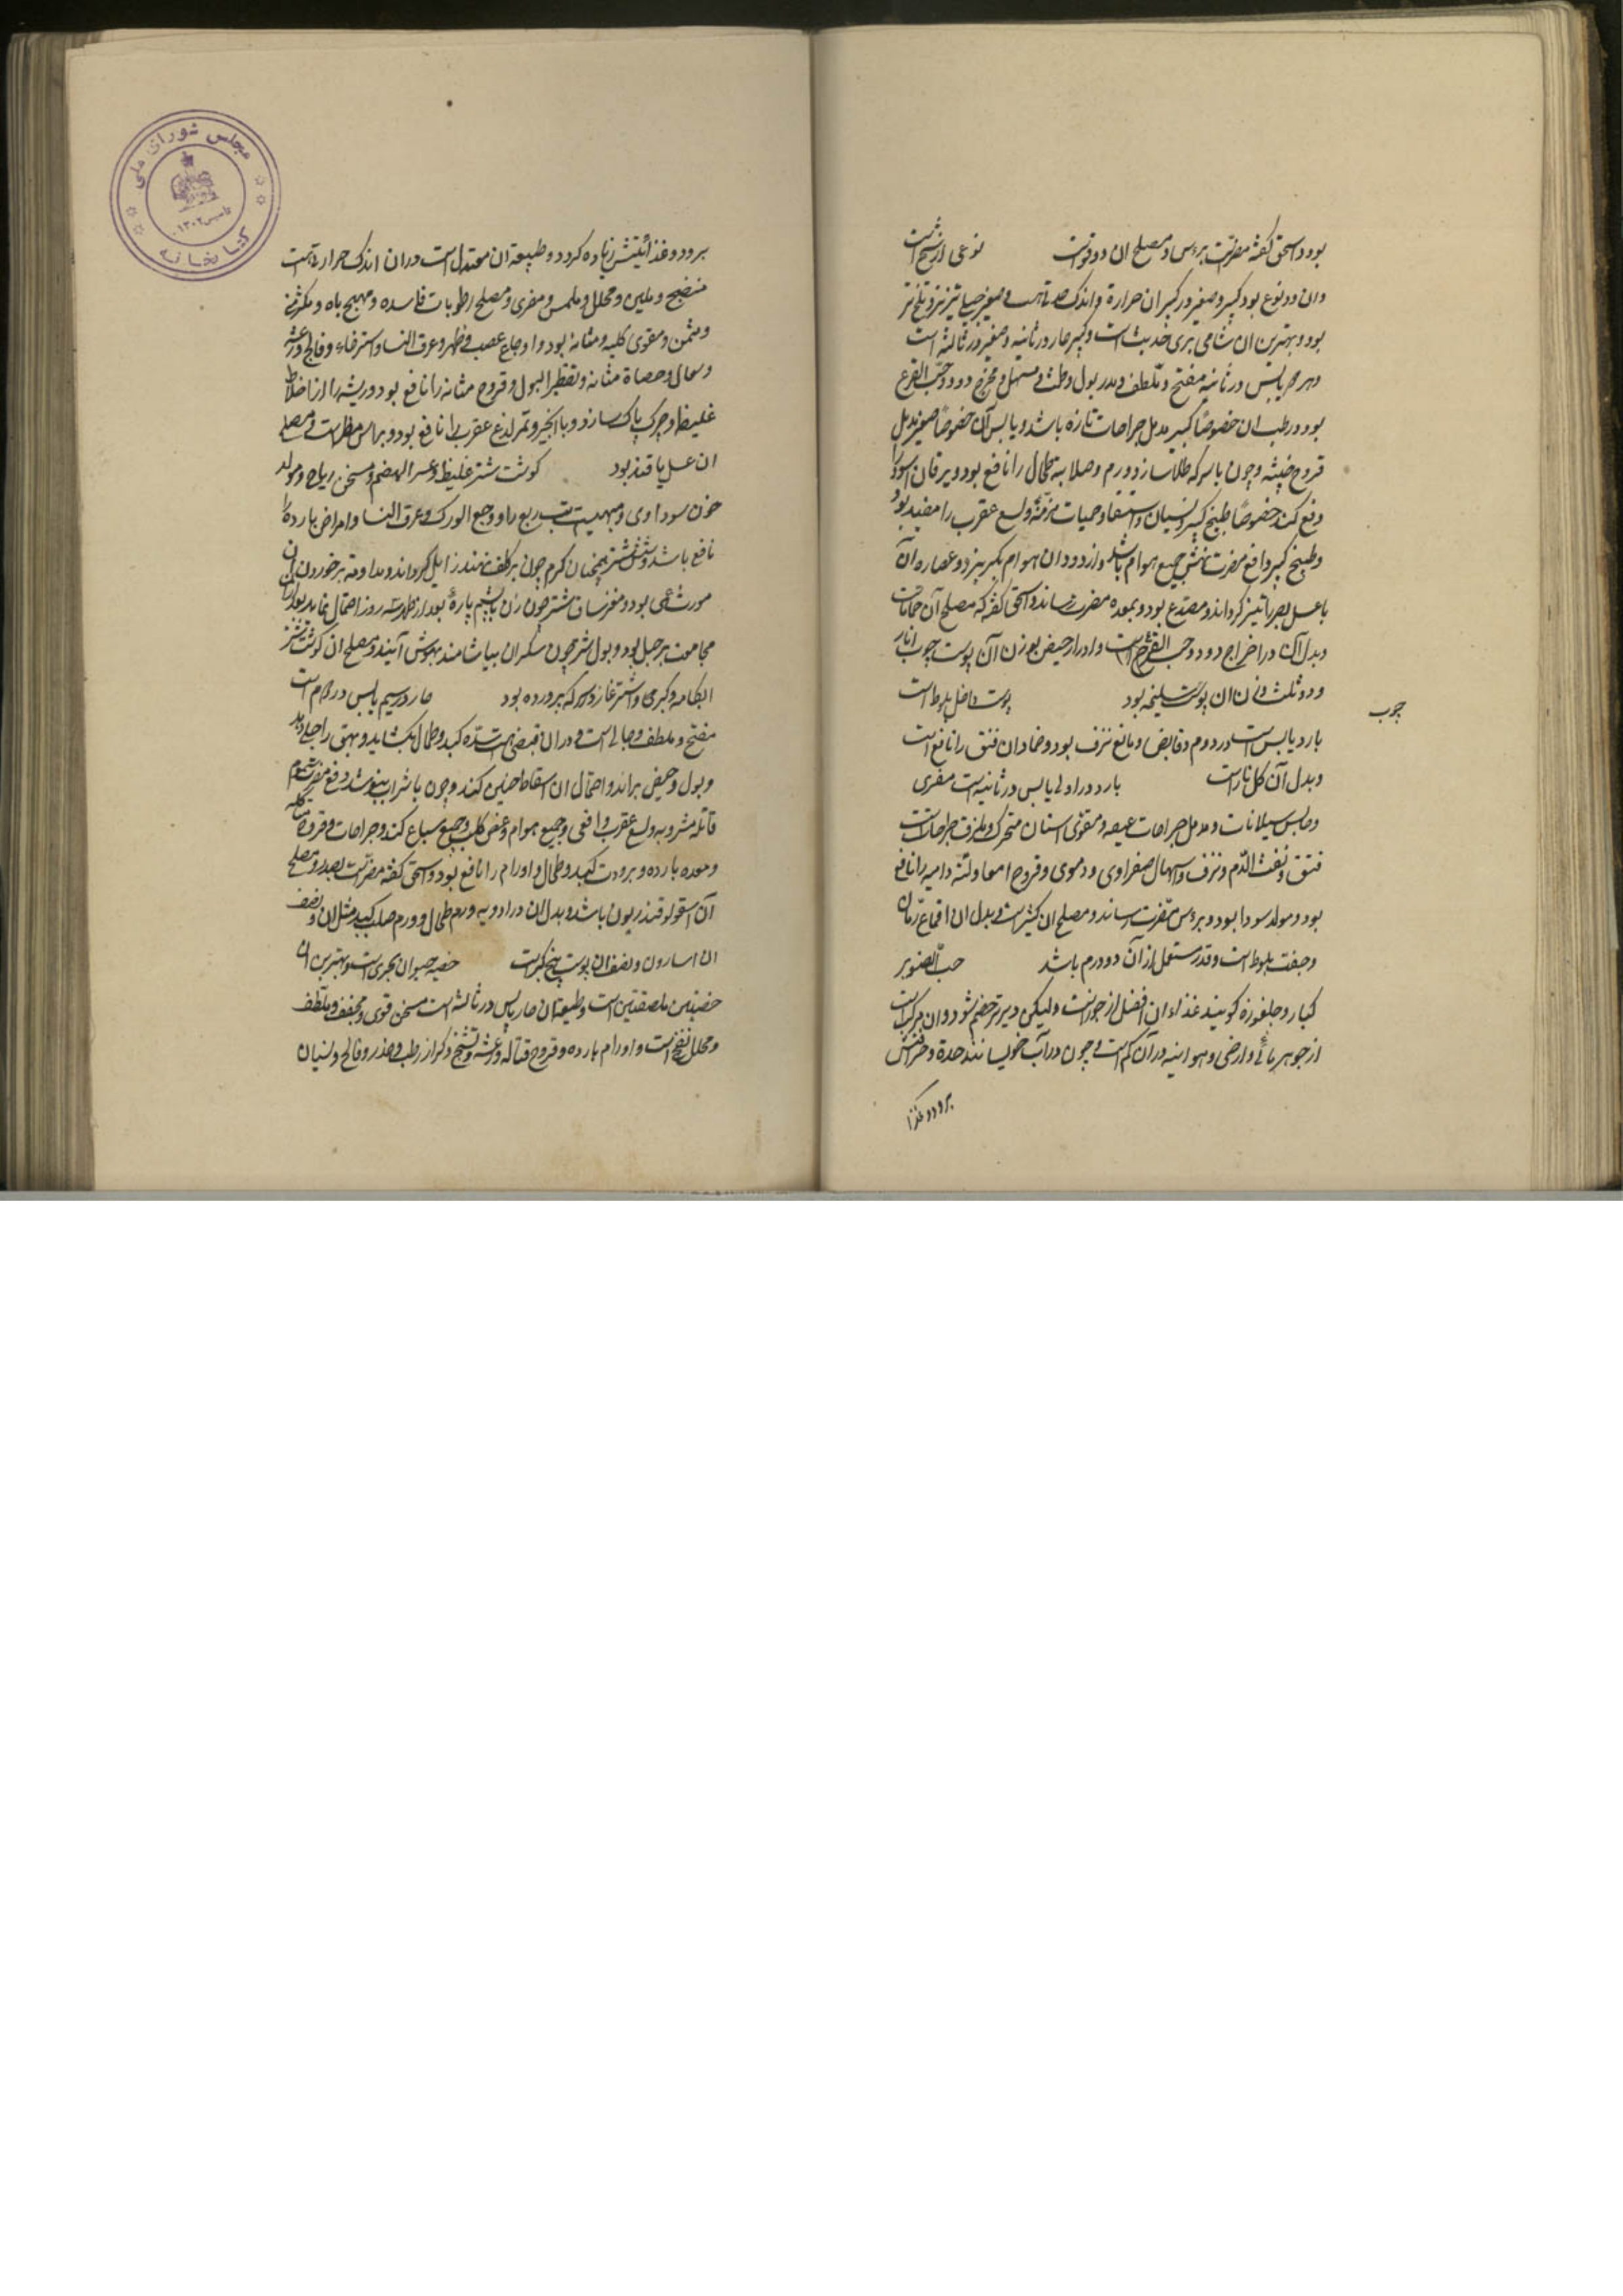 بود و اسحق گفته مضرتست برءس و مصلح ان دوقوست نوعی از شیح است
و ان دو نوع بود کبیر و صغیر در کبیر ان حرارة و اندک حدتی هست و صغیر تیزتر و تلخ تر
بود و بهترین ان شامی بری حدیث است و کبیر حار در ثانیه و صغیر در ثالثه است
و هر دو یابس در ثانیه مفتح و ملطف و مدر بول و طمث و مسهل و مخرج دود و حب القرع
بود و رطب ان خصوصاً کبیر مدمل جراحات تازه باشد و یابس آن خصوصاً صغیر مدمل
قروح خبیثه و چون با سرکه طلا سازند ورم و صلابة طحال را نافع بود و یرقان اسود را
دفع کند خصوصاً طبیخ کبیر و نسیان و استسقا و حمیات مزمنه و لسع عقرب را مفید بود
و طبیخ کبیر دافع مضرت نهش جمیع هوام باشد و از دود ان هوام بگریزند و عصاره ان
با عسل بصر را تیز گرداند و مصدع بود و بمعده مضرت رساند و اسحق گفته که مصلح آن حماما است
و بدل آن در اخراج دود و حب القرع است و ادرار حیض بوزن آن پوست چوب انار
و دو ثلث وزن ان پوست سلیخه بود پوست داخل بلوط است
چوب
بارد یابس است در دوم و قابض و مانع نزف بود و ضماد ان فتق را نافع است
و بدل آن کل نار است بارد در اولی یابس در ثانیه است مغری
و حابس سیلانات و مدمل جراحات عیصه و مقوی اسنان متحرک و ملزق جراحات است
فتق و نفث الدم و نزف و اسهال صفراوی و دموی و قروح امعا و لثه دامیه را نافع
بود و مولد سودا بود و برءس مضرت رساند و مصلح ان کثیر است و بدل ان اقماع رمان
و جفت بلوط است و قدر مستعمل از آن دو درم باشد حب الصنوبر
کبار و جلغوزه گویند غذاء ان افضل از جوزست ولیکن دیرتر هضم شود و ان مرکب است
از جوهر مائی و ارضی و هوائیه در آن کم است و چون در آب خویسانند حدة و حرافتش
برود و غذا
مجلس شورای ملی
تاسیس ۱۳۰۲
کتابخانه
برود و غذائیتش زیاده گردد و طبیعة ان معتدل است در ان اندک حرارتی هست
منضج و ملین و محلل و مملس و مغری و مصلح رطوبات فاسده و مهیج باه و مکثر منی
و مسمن و مقوی کلیه و مثانه بود و اوجاع عصب و ظهر و عرق النسا و استرخاء و فالج و رعشه
و سعال و حصاة مثانه و تقطیر البول و قروح مثانه را نافع بود و ریشه را از اخلاط
غلیظ و چرک پاک سازد و با انجیر و تمر لدغ عقرب را نافع بود و براس مضر است و مصلح
ان عسل یا قند بود گوشت شتر غلیظ و عسر الهضم و مسخن ریاح و مولد
خون سوداوی و مهیست تب ربع را و وجع الورک و عرق النسا و امراض بارده را
نافع باشد و شش شتر همچنان گرم چون بر کلف نهند زایل گرداند و مداومة بر خوردن ان
مورث عمی بود و مغز ساق شتر چون زن با پشم پاره بعد از طهر سه روز احتمال نماید بعد از ان
مجامعت بر حبل بود و بول شتر چون سکران بیاشامند بهوش آیند و مصلح ان گوشت شتر
ابکامه و کبر می و اشترغاز در سرکه پرورده بود حار در سیم یابس در دوم است
مفتح و ملطف و جالی است و در ان قبضی هست سدّه کبد و طحال بگشاید و بهق را جلا دهد
و بول و حیض براند و احتمال ان اسقاط جنین کند و چون با شراب بنوشند دفع مضرت سموم
قاتله مشروبه و لسع عقرب و افعی و جمیع هوام و عض کلب و جمیع سباع کند و جراحات و قروح متآکله
و معده بارده و برودت کبد و طحال و اورام را نافع بود و اسحق گفته مضرتست بصدر و مصلح
آن اسقولوقندریون باشد و بدل ان در ادویه ورم طحال و ورم صلب کبد مثل ان و نصف
ان اسارون و نصف ان پوست بیخ کبرست خصیه حیوان بحری است و بهترین ان
خصیتین ملصقتین است و طبیعة ان حار یابس در ثالثه است مسخن قوی و مجفف و ملطف
و محلل نفخ است و اورام بارده و قروح قتاله و رعشه و تشنج و کزاز رطب و خدر و فالج و نسیان